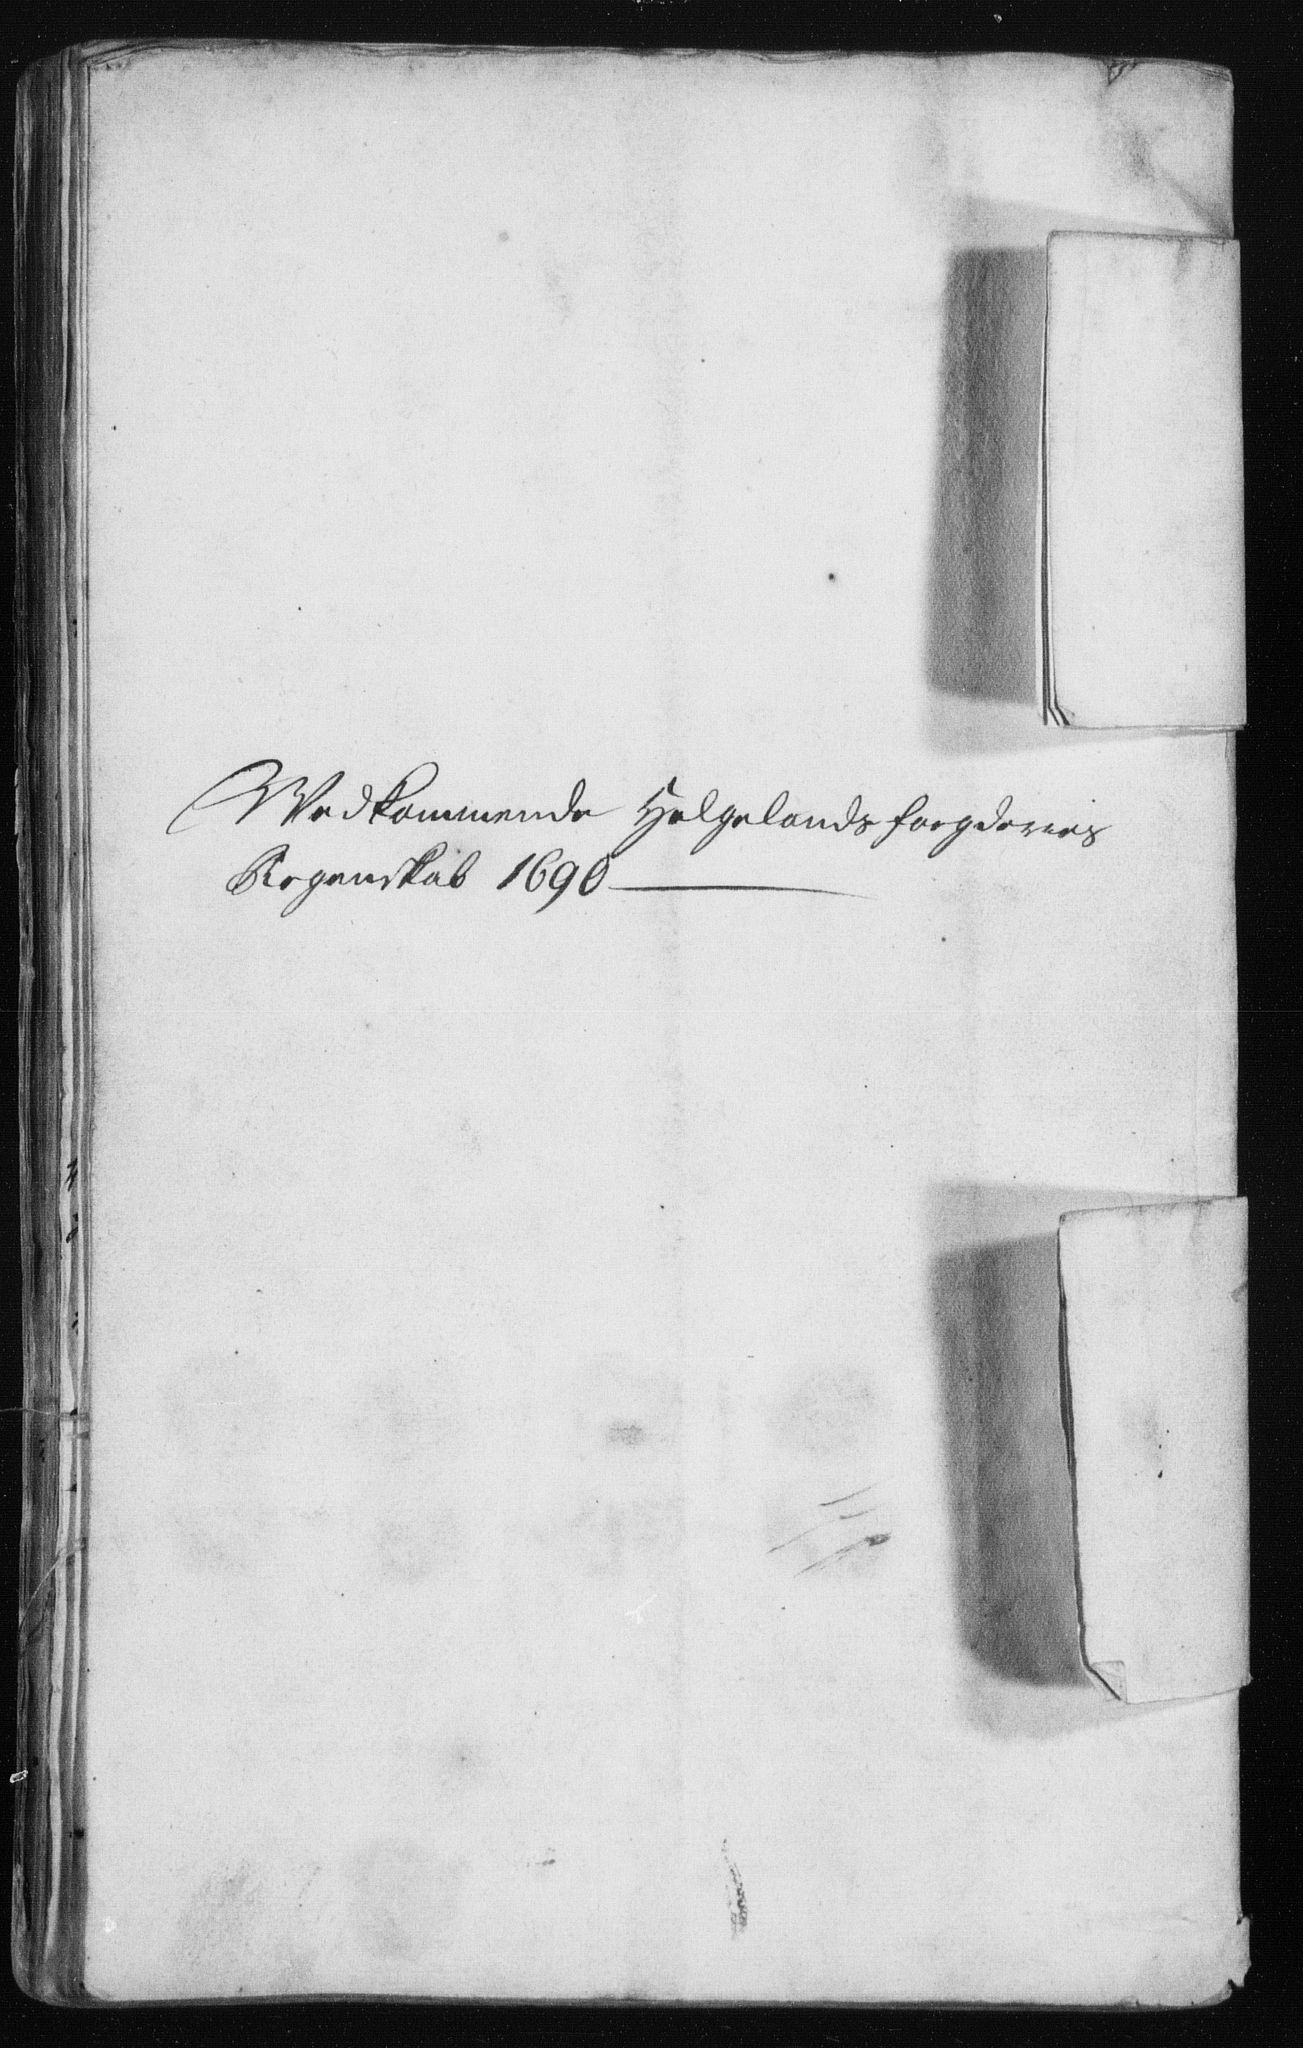 Wedkommende Helgelands fogderies
Regenskab 1690